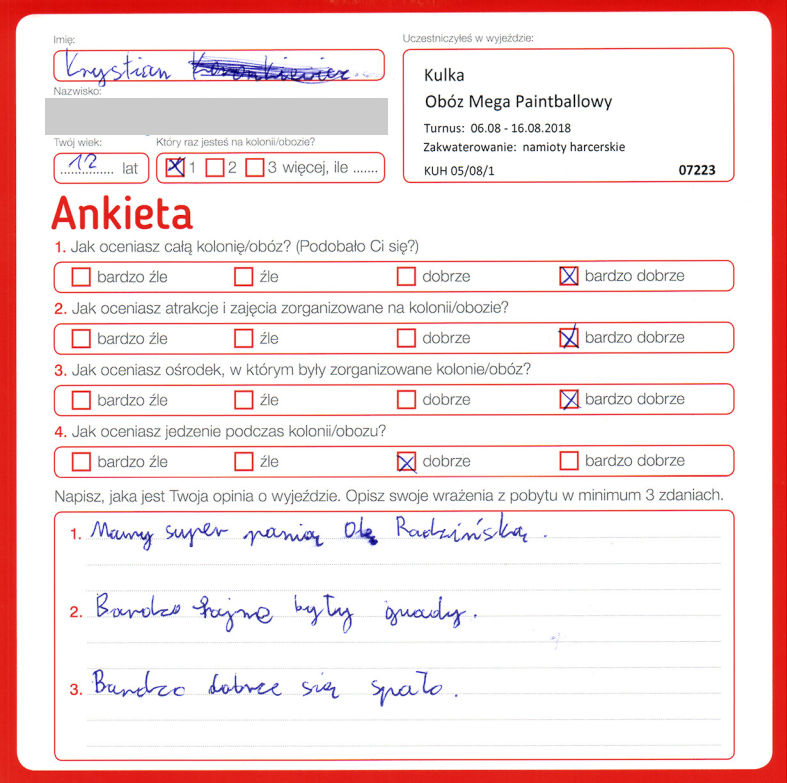 Imię:
Krystian
Nazwisko:
Twój wiek:
12 lat
Który raz jesteś na kolonii/obozie?
1 2 3 więcej, ile .......
Uczestniczyłeś w wyjeździe:
Kulka
Obóz Mega Paintballowy
Turnus: 06.08 - 16.08.2018
Zakwaterowanie: namioty harcerskie
KUH 05/08/1 07223
Ankieta
1. Jak oceniasz całą kolonię/obóz? (Podobało Ci się?)
bardzo źle źle dobrze bardzo dobrze
2. Jak oceniasz atrakcje i zajęcia zorganizowane na kolonii/obozie?
bardzo źle źle dobrze bardzo dobrze
3. Jak oceniasz ośrodek, w którym były zorganizowane kolonie/obóz?
bardzo źle źle dobrze bardzo dobrze
4. Jak oceniasz jedzenie podczas kolonii/obozu?
bardzo źle źle dobrze bardzo dobrze
Napisz, jaka jest Twoja opinia o wyjeździe. Opisz swoje wrażenia z pobytu w minimum 3 zdaniach.
1. Mamy super panią Olę Radzińską.
2. Bardzo fajne były .
3. Bardzo dobrze się spało.